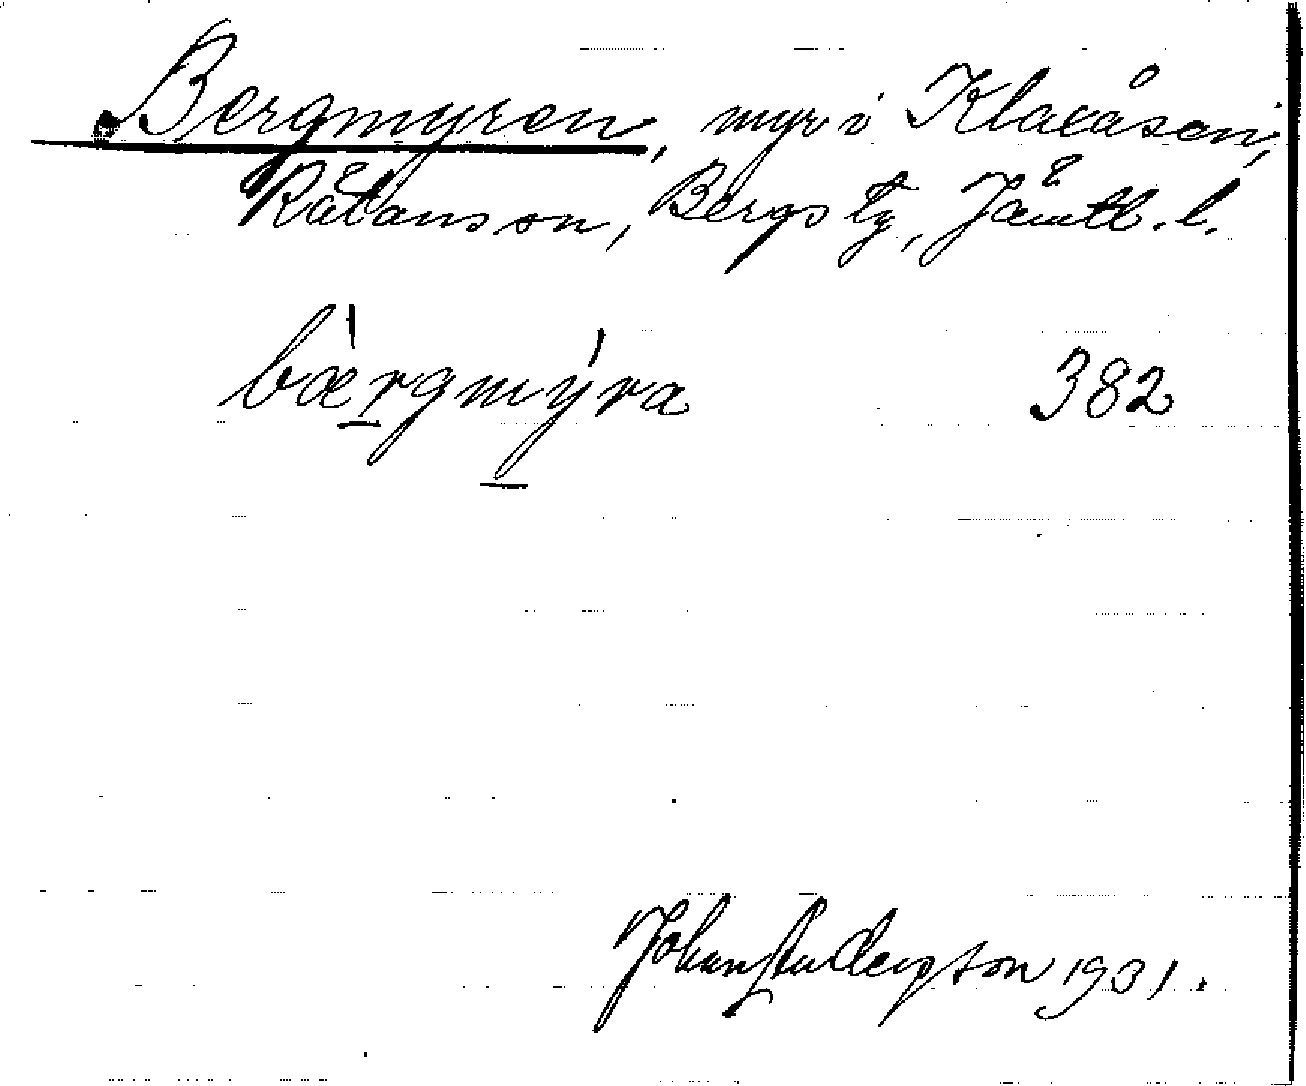 Bergmyren, myr i Klaxåsen,
Rätans sn, Bergs tg, Jämtl. l.
bærgmýra 382
Johan Anderson 1931.